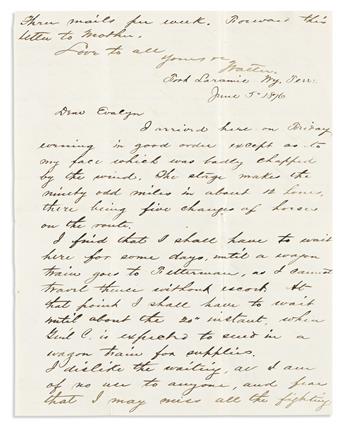 Three mails per week. Forward this
letter to Mother.
Love to all
yours
Walter.
Fort Laramie Wy. Terr.
June 5th 1876
Dear Evalyn
I arrived here on Friday
evening in good order except as to
my face which was badly chapped
by the wind. The stage makes the
ninety odd miles in about 12 hours,
there being five changes of horses
on the route.
I find that I shall have to wait
here for some days, until a wagon
train goes to Fetterman, as I cannot
travel thence without escort. At
that point I shall have to wait
until about the 20th instant, when
Genl C. is expected to send in a
wagon train for supplies.
I dislike the waiting, as I am
of no use to anyone, and fear
that I may miss all the fighting